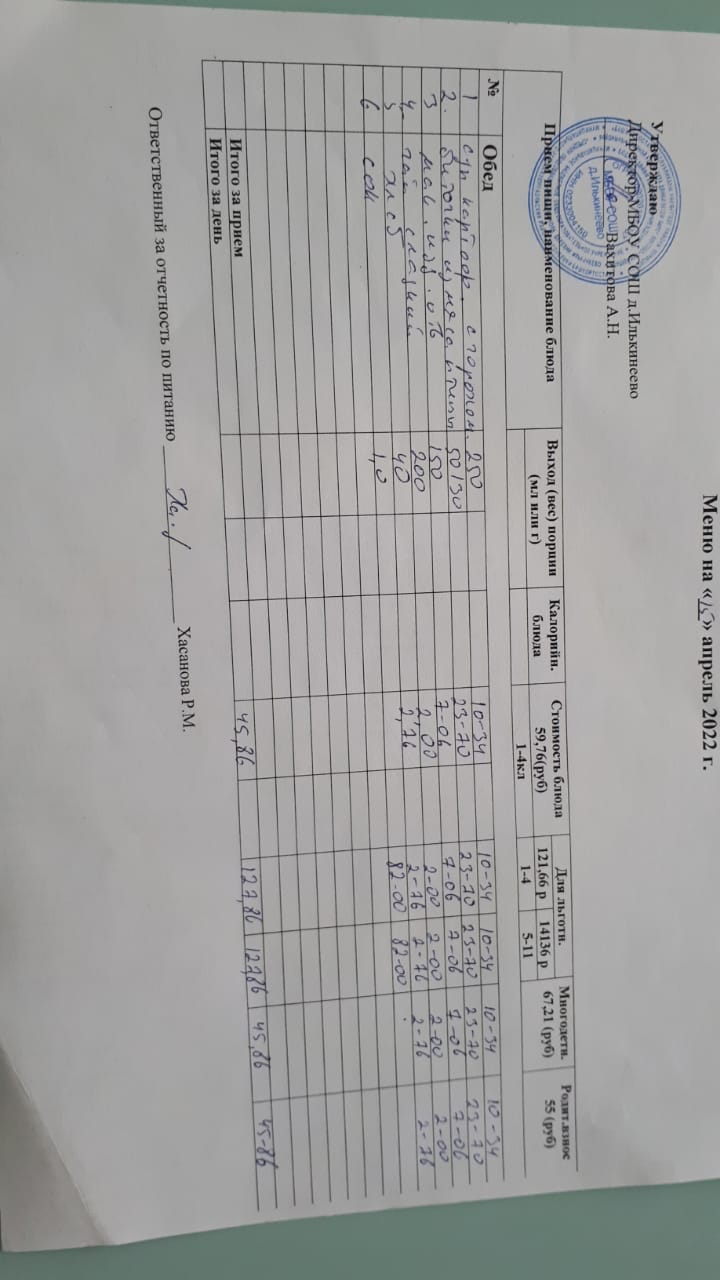 Меню на «15» апрель 2022 г.
Утверждаю
Директор МБОУ СОШ д.Илькинеево
Вахитова А.Н.
д.Илькинеево
Прием пищи, наименование блюда
Выход (вес) порции (мл или г)
Калорийн. блюда
Стоимость блюда 59,76(руб) 1-4кл
Для льготн.
121,66 р 1-4
14136 р 5-11
Многодетн. 67,21 (руб)
Родит.взнос 55 (руб)
№ Обед
1 суп картоф. с горохом. 250 10-34 10-34 10-34 10-34 10-34
2. биточки из мяса птицы 50/30 23-70 23-70 23-70 23-70 23-70
3 мак. изд. отв 150 7-06 7-06 7-06 7-06 7-06
4. чай сладкий 200 2,00 2-00 2-00 2-00 2-00
5 хлеб 40 2,76 2-76 2-76 2-76 2-76
6 сок 1,0 82-00 82-00
Итого за прием 45,86 127,86 127,86 45,86 45-86
Итого за день
Ответственный за отчетность по питанию Хасанова Р.М.